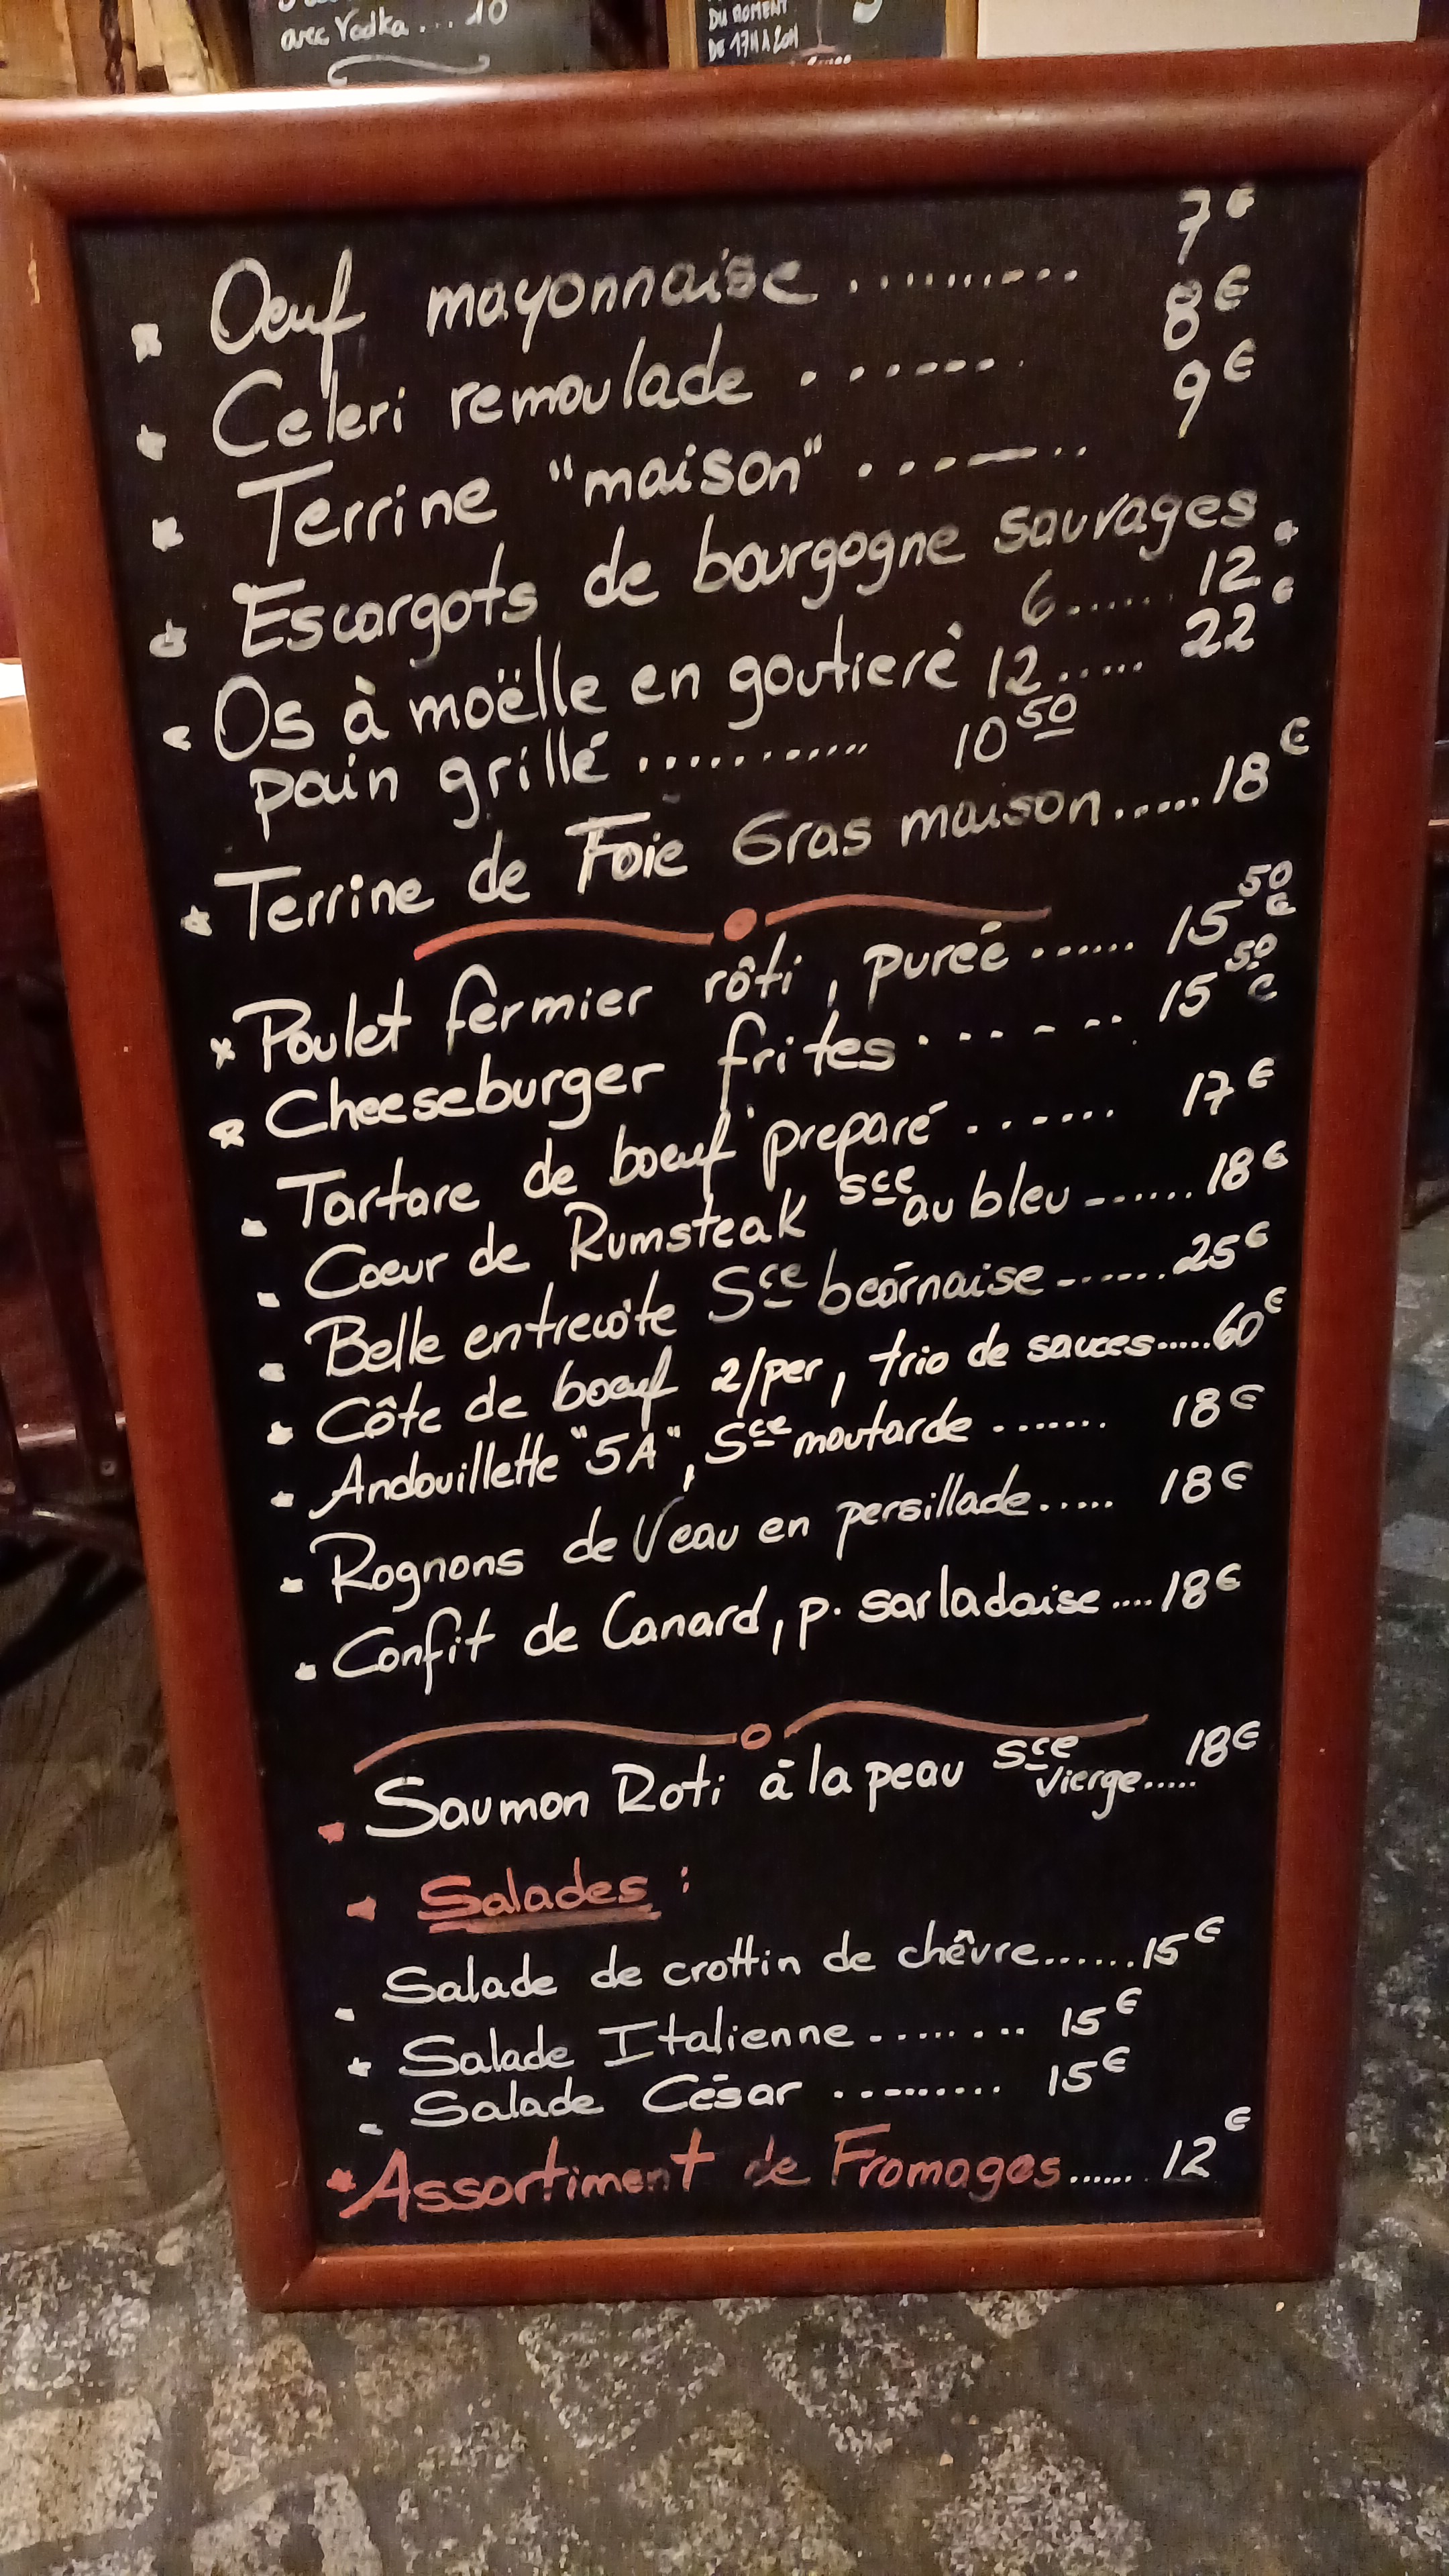 avec Vodka ... 10
DU MOMENT
DE 17H A 20H
Oeuf mayonnaise .......... 7€
Celeri remoulade ....... 8€
Terrine "maison" ...... 9€
Escargots de bourgogne sauvages
6...... 12€
12..... 22€
Os à moëlle en goutierè
pain grillé ........... 10 50
Terrine de Foie Gras maison ..... 18€
Poulet fermier rôti, purée ...... 15 50 €
Cheeseburger frites ....... 15 50 €
Tartare de boeuf preparé ...... 17€
Coeur de Rumsteak Sce au bleu ...... 18€
Belle entrecôte Sce beárnaise ...... 25€
Côte de boeuf 2/per, trio de sauces ..... 60€
Andouillette "5A", Sce moutarde ....... 18€
Rognons de Veau en persillade ..... 18€
Confit de Canard, p. sarladaise .... 18€
Saumon Roti à la peau Sce Vierge ..... 18€
Salades :
Salade de crottin de chêvre ....... 15€
Salade Italienne ........ 15€
Salade César ......... 15€
Assortiment de Fromages ...... 12€